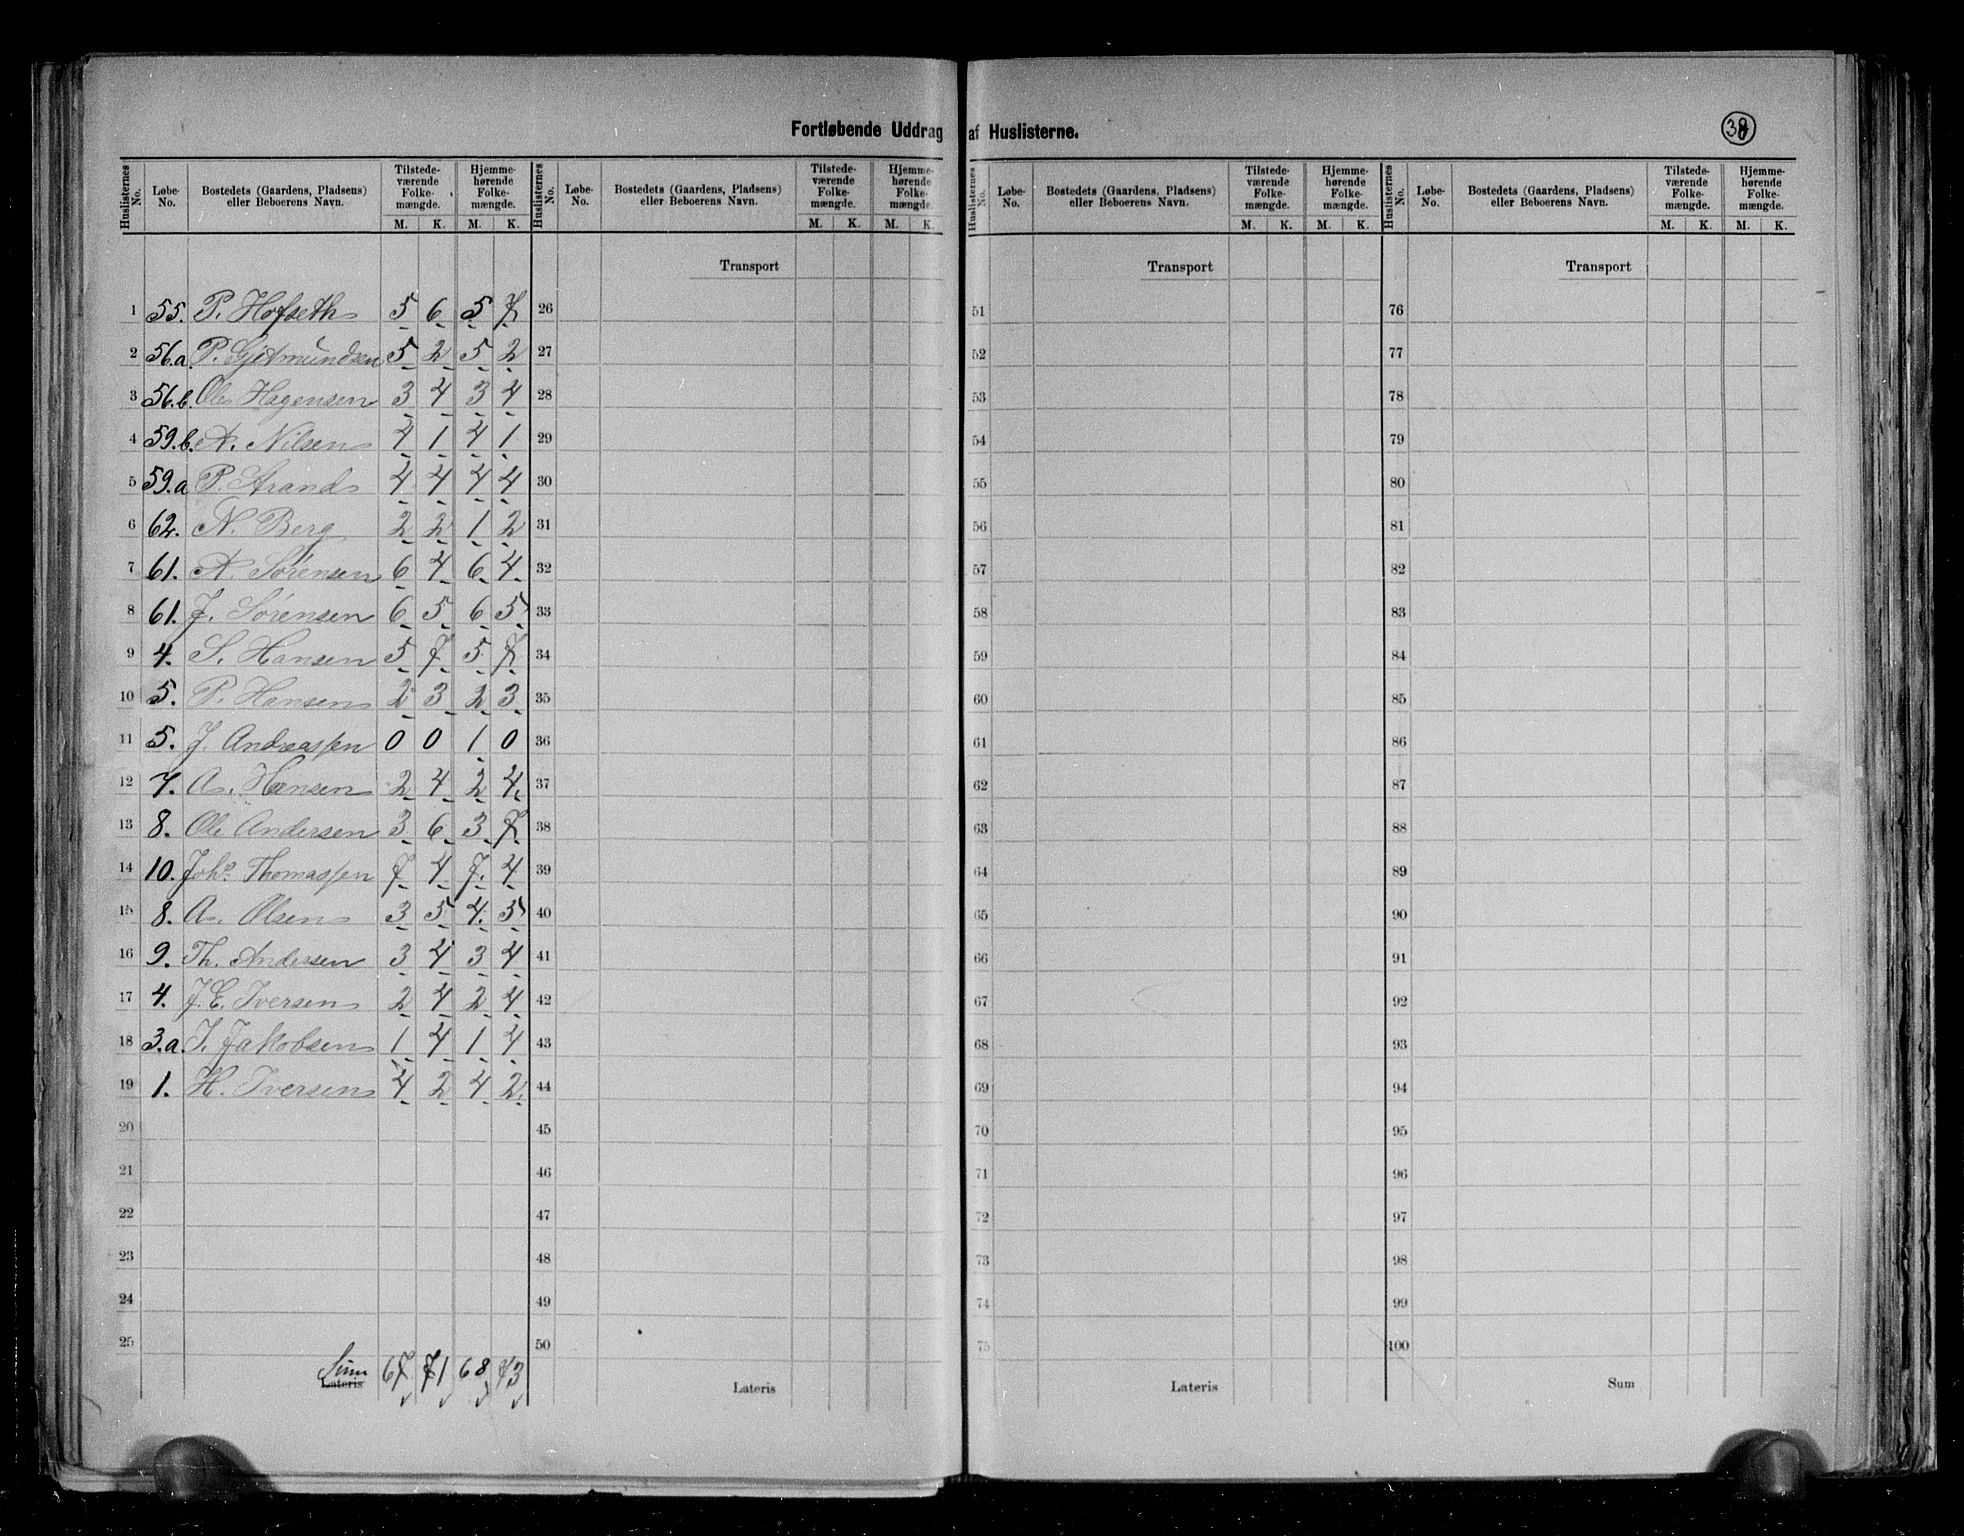 Fortløbende Uddrag af Huslisterne.
38
Huslisternes No. Løbe-No. Bostedets (Gaardens, Pladsens) eller Beboerens Navn. Tilstedeværende Folkemængde. M. K. Hjemmehørende Folkemængde. M. K.
Huslisternes No. Løbe-No. Bostedets (Gaardens, Pladsens) eller Beboerens Navn. Tilstedeværende Folkemængde. M. K. Hjemmehørende Folkemængde. M. K.
Huslisternes No. Løbe-No. Bostedets (Gaardens, Pladsens) eller Beboerens Navn. Tilstedeværende Folkemængde. M. K. Hjemmehørende Folkemængde. M. K.
Huslisternes No. Løbe-No. Bostedets (Gaardens, Pladsens) eller Beboerens Navn. Tilstedeværende Folkemængde. M. K. Hjemmehørende Folkemængde. M. K.
Transport Transport Transport
1 55. P. Hofseth 5 6 5 7 26 51 76
2 56.a P. Gjetmundsen 5 2 5 2 27 52 77
3 56.b. Ole Hagensen 3 4 3 4 28 53 78
4 59.b. A. Nilsen 4 1 4 1 29 54 79
5 59.a P. Strand 4 4 4 4 30 55 80
6 62. N. Berg 2 2 1 2 31 56 81
7 61. A. Sörensen 6 4 6 4 32 57 82
8 61. J. Sörensen 6 5 6 5 33 58 83
9 4. S. Hansen 5 7 5 7 34 59 84
10 5. P. Hansen 2 3 2 3 35 60 85
11 5. J. Andreassen 0 0 1 0 36 61 86
12 7. A. Hansen 2 4 2 4 37 62 87
13 8. Ole Andersen 3 6 3 7 38 63 88
14 10. Johs. Thomassen 7 4 7 4 39 64 89
15 8. A. Olsen 3 5 4 5 40 65 90
16 9. Th. Andersen 3 4 3 4 41 66 91
17 4. J. E. Iversen 2 4 2 4 42 67 92
18 3.a. I. Jakobsen 1 4 1 4 43 68 93
19 1. H. Iversen 4 2 4 2 44 69 94
20 45 70 95
21 46 71 96
22 47 72 97
23 48 73 98
24 49 74 99
25 50 75 100
Sum 67 71 68 73
Lateris Lateris Lateris Sum